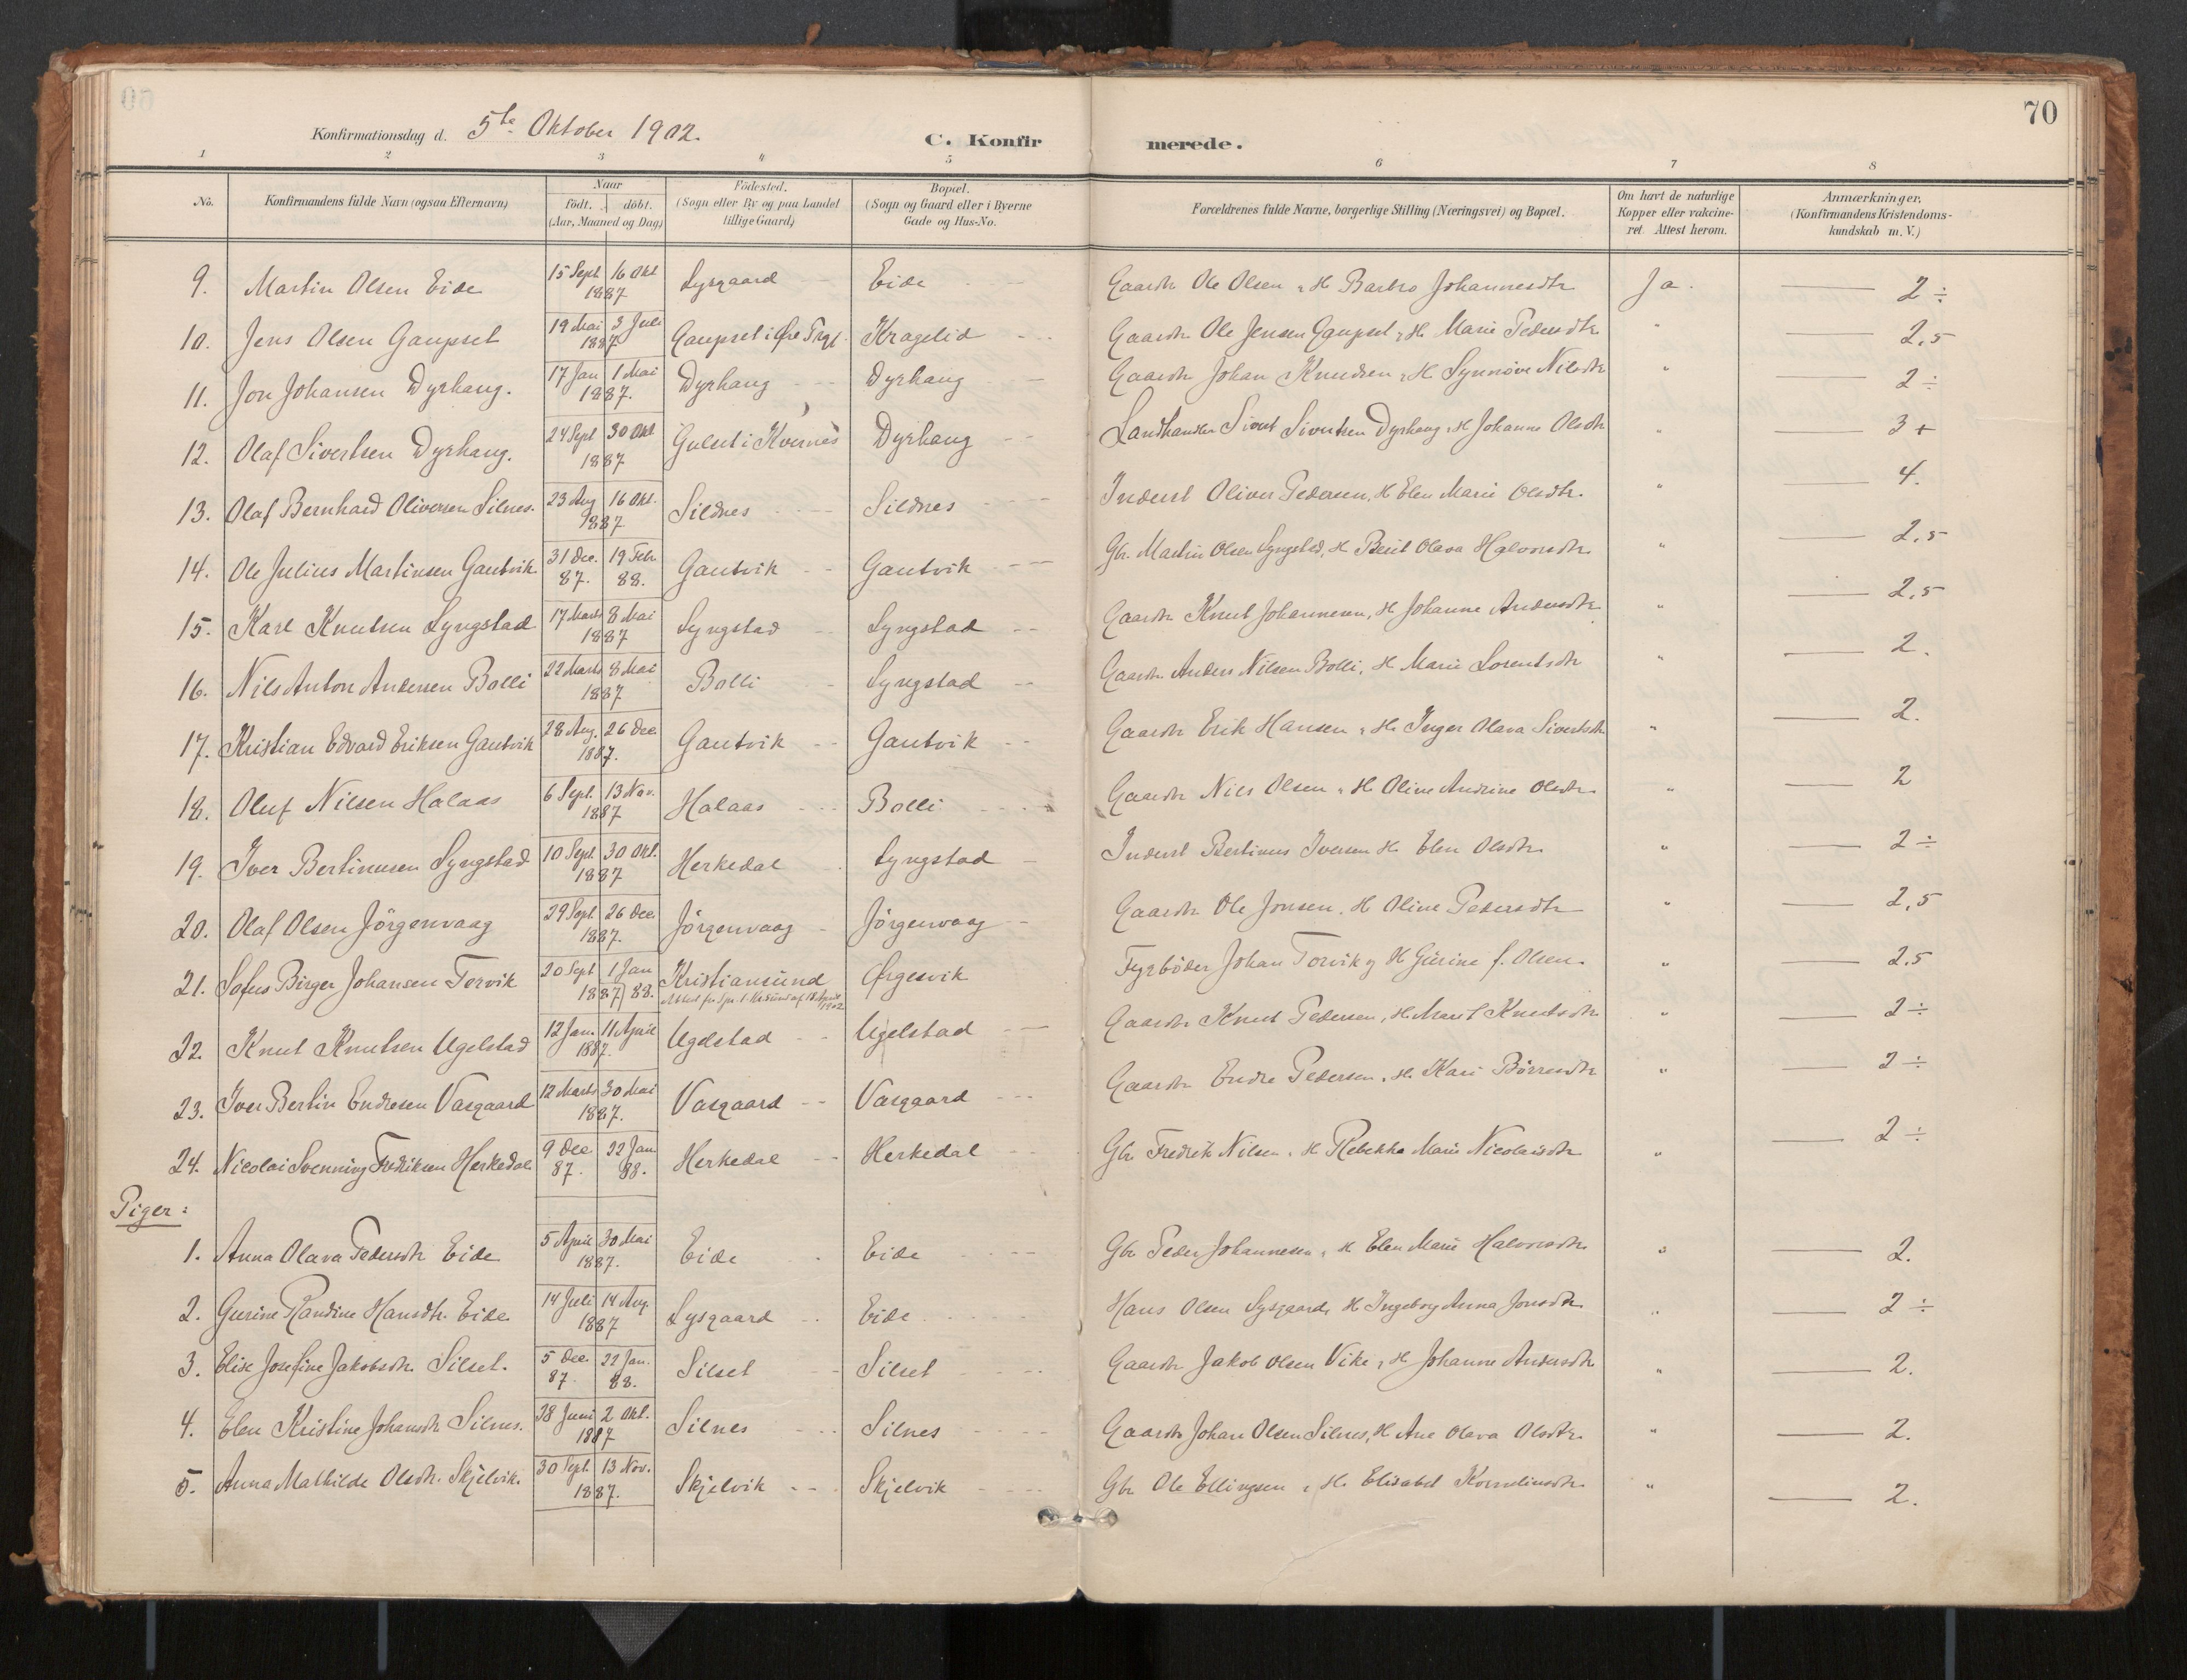 70
Konfirmationsdag d. 5te Oktober 1902.
C. Konfirmerede.
1 2 3 4 5 6 7 8
No. Konfirmandens fulde Navn (ogsaa Efternavn) Naar födt. döbt. (Aar, Maaned og Dag) Födested. (Sogn eller By og paa Landet tillige Gaard) Bopæl. (Sogn og Gaard eller i Byerne Gade og Hus-No. Forældrenes fulde Navne, borgerlige Stilling (Næringsvei) og Bopæl. Om havt de naturlige Kopper eller vakcineret. Attest herom. Anmærkninger. (Konfirmandens Kristendomskundskab m. V.)
9. Martin Olsen Eide 15 Sept. 16 Okt 1887 Lysgaard Eide Gaardbr Ole Olsen & H Barbro Johannesdtr Ja. 2 ÷
10. Jens Olsen Gaupset 19 Mai 3 Juli 1887 Gaupset i Øre Kragelid Gaardbr Ole Jensen Gaupset & H Marie Pedersdtr " 2,5
11. Jon Johansen Dyrhaug. 17 Jan 1 Mai 1887. Dyrhaug Dyrhaug Gaardbr Johan Knudsen & H Synnøve Nilsdtr " 2 ÷
12. Olaf Sivertsen Dyrhaug. 24 Sept 30 Okt 1887 i Kvernes Dyrhaug Landhandler Sivert Sivertsen Dyrhaug & H Johanne Olsdtr " 3 +
13. Olaf Bernhard Oliversen Silnes. 23 Aug 16 Okt. 1887 Sildnes Sildnes Inderst Oliver Pedersen, H Elen Marie Olsdtr. " 4.
14. Ole Julius Martinsen Gautvik 31 Dec. 87. 19 Febr. 88. Gautvik Gautvik Gbr. Martin Olsen Lyngstad, H Berit Olava Halvorsdtr. " 2,5
15. Karl Knutsen Lyngstad 17 Marts 8 Mai 1887 Lyngstad Lyngstad Gaardbr Knut Johannesen, H Johanne Andersdtr. " 2,5
16. Nils Anton Andersen Bolli 22 Marts 8 Mai 1887 Bolli Lyngstad Gaardbr Anders Nilsen Bolli, H Marie Lorentsdtr " 2.
17. Kristian Edvard Eriksen Gautvik 28 Aug. 26 Dec. 1887. Gautvik Gautvik Gaardbr Erik Hansen & H. Inger Olava Sivertsdtr " 2.
18. Oluf Nilsen Halaas 6 Sept. 13 Nov. 1887 Halaas Bolli Gaardbr Nils Olsen & H Oline Andrine Olsdtr " 2
19. Iver Bertinusen Lyngstad 10 Sept. 30 Okt. 1887 Herkedal Lyngstad Inderst Bertinus Iversen H. Elen Olsdtr. " 2 ÷
20. Olaf Olsen Jörgenvaag 29 Sept. 26 Dec. 1887. Jörgenvaag Jörgenvaag Gaardbr Ole Jonsen, H Oline Pedersdtr " 2,5
21. Sofus Birger Johansen Torvik 20 Sept 1887 1 Jan 88. Kristiansund Attest fr. Spr. t. Kr.sund af 18 April 1902 Ørgesvik Fyrböder Johan Torvik og H Gurine f. Olsen. " 2.5
22. Knut Knutsen Ugelstad 12 Jan. 11 April 1887. Ugelstad Ugelstad Gaardbr Knut Pedersen, H. Marit Knutsdtr " 2 ÷
23. Iver Bertin Endresen Vasgaard 12 Marts 30 Mai 1887. Vasgaard Vasgaard Gaardbr Endre Pedersen, H. Kari Börresdtr " 2 ÷
24. Nicolai Svenning Fredriksen Herkedal 9 Dec 87. 22 Jan 88. Herkedal Herkedal Gbr Fredrik Nilsen, H Rebekka Marie Nicolaisdtr " 2 ÷
Piger:
1. Anna Olava Pedersdtr Eide 5 April 30 Mai 1887. Eide Eide Gbr Peder Johannesen & H Elen Marie Halvorsdtr. " 2.
2. Gurine Randine Hansdtr. Eide 14 Juli 14 Aug. 1887 Lysgaard Eide Hans Olsen Lysgaard, H Ingeborg Anna Jonsdtr. " 2 ÷
3. Elise Josefine Jakobsdtr. Silset. 5 Dec. 87 22 Jan. 88. Silset Silset Gaardbr Jakob Olsen Vike & H Johanne Andersdtr " 2.
4. Elen Kristine Johansdtr Silnes. 28 Juni 2 Okt. 1887 Silnes Silnes Gaardbr Johan Olsen Silnes, H Ane Olava Olsdtr. " 2.
5. Anna Mathilde Olsdtr. Skjelvik. 30 Sept. 13 Nov. 1887. Skjelvik Skjelvik Gbr Ole Ellingsen & H. Elisabet Korneliusdtr. " 2.